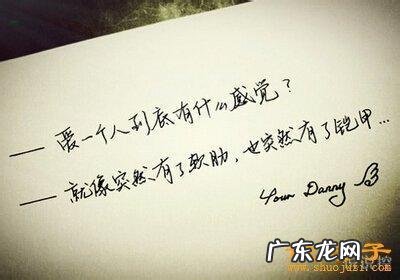 —— 爱一个人到底有什么感觉？
—— 就像突然有了软肋，也突然有了铠甲…
Your Danny
广东龙网
www.shuojuzi.com